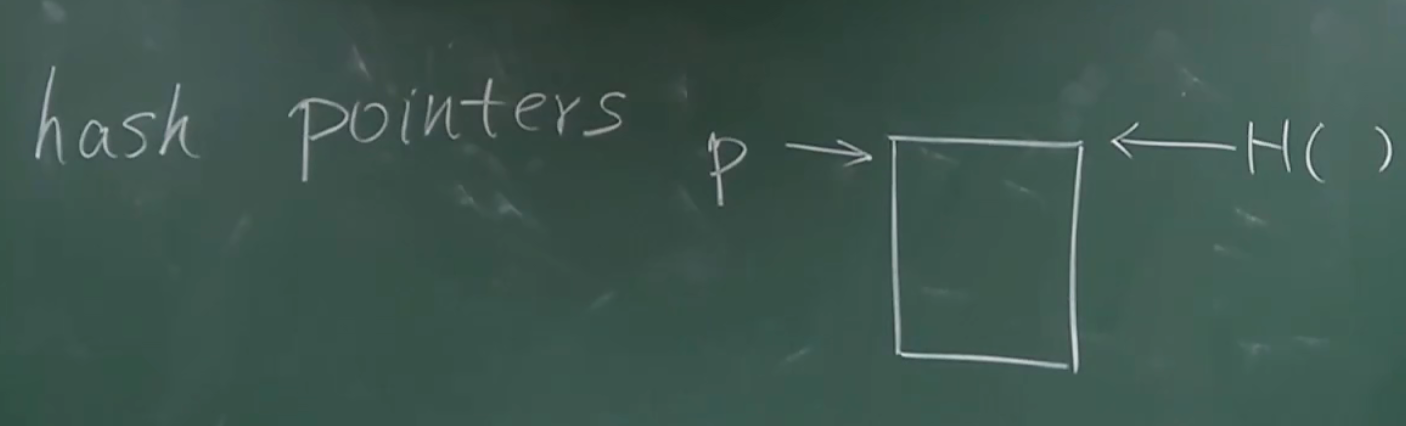 hash pointers
p → ← H( )